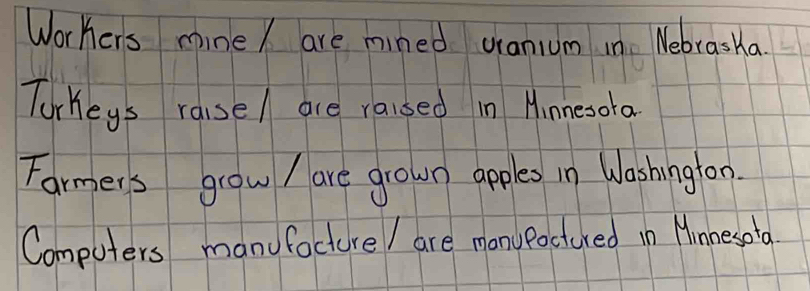 Workers mine/ are mined uranium in Nebraska.
Turkeys raise/ are raised in Minnesota.
Farmers grow/are grown apples in Washington.
Computers manufacture/ are manufactured in Minnesota.